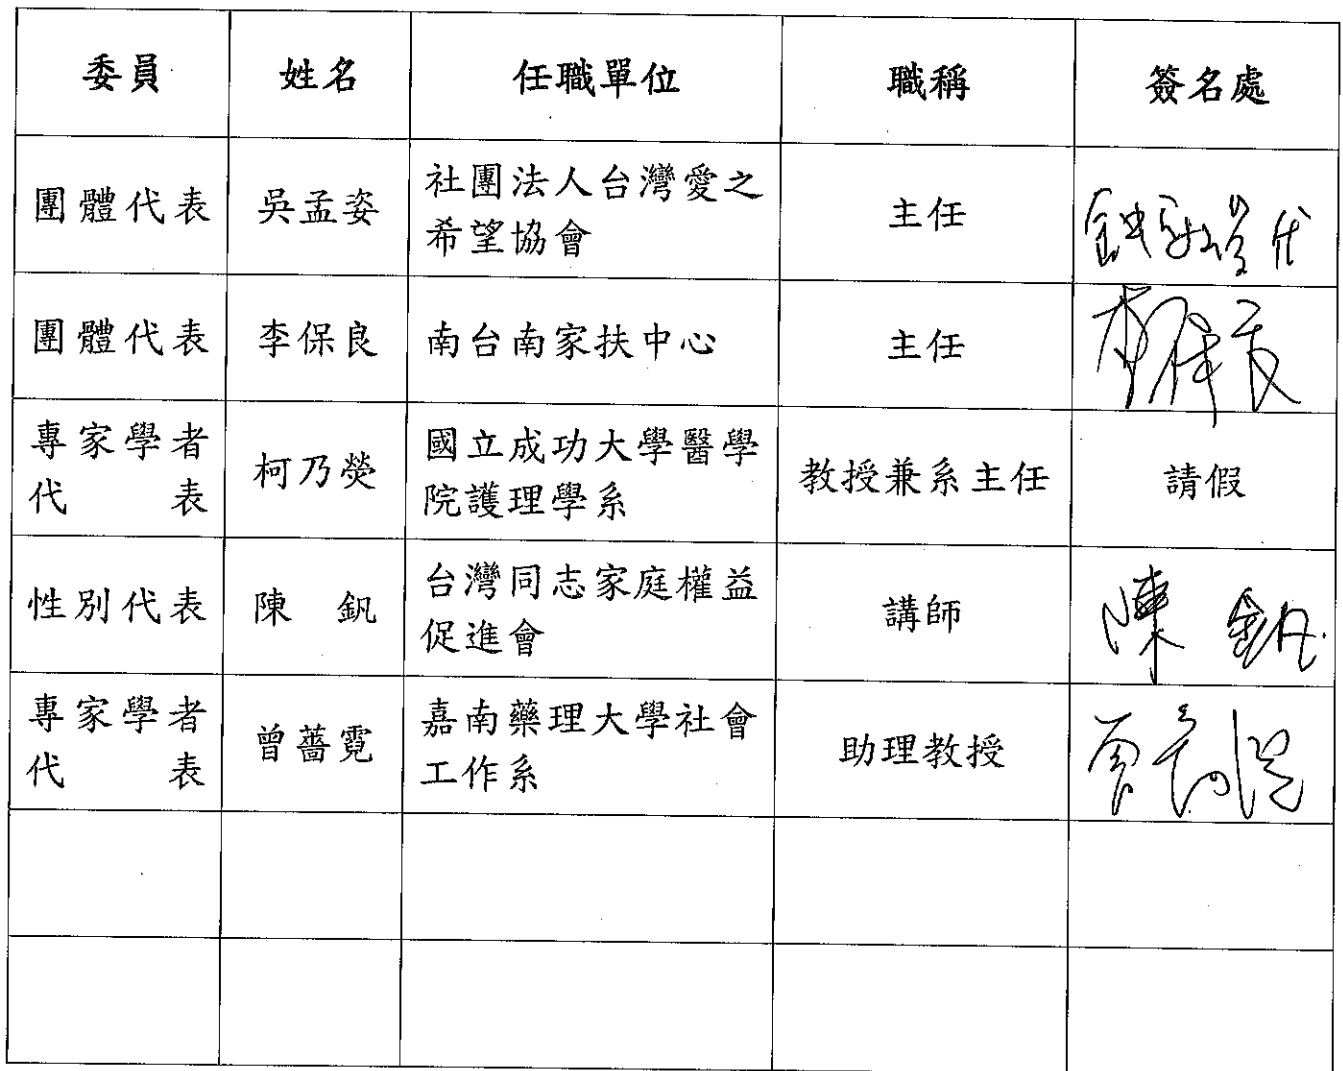 委員 姓名 任職單位 職稱 簽名處
團體代表 吳孟姿 社團法人台灣愛之
希望協會 主任 代
團體代表 李保良 南台南家扶中心 主任 李保良
專家學者
代表 柯乃熒 國立成功大學醫學
院護理學系 教授兼系主任 請假
性別代表 陳 釩 台灣同志家庭權益
促進會 講師 陳 釩
專家學者
代表 曾薔霓 嘉南藥理大學社會
工作系 助理教授